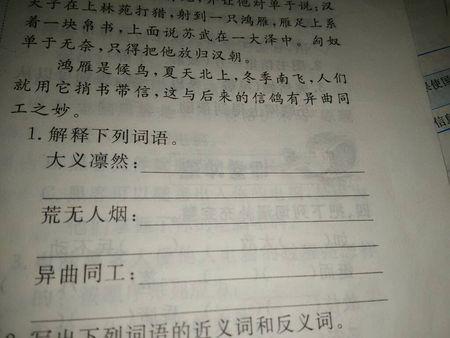 天子在上林苑打猎,射到一只鸿雁,雁足上系
着一块帛书,上面说苏武在一大泽中。匈奴
单于无奈,只得把他放归汉朝。
鸿雁是候鸟,夏天北上,冬季南飞,人们
就用它捎书带信,这与后来的信鸽有异曲同
工之妙。
1.解释下列词语。
大义凛然:
荒无人烟:
异曲同工:
写出下列词语的近义词和反义词。